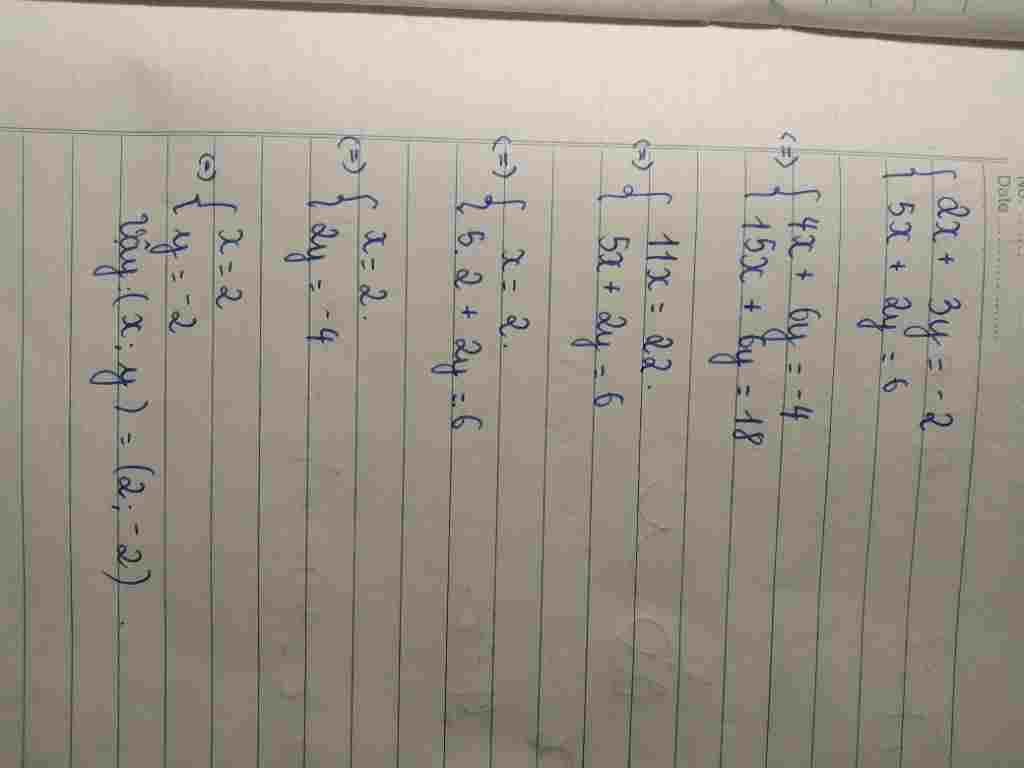 No.
Date
{ 2x + 3y = -2
{ 5x + 2y = 6
(=) { 4x + 6y = -4
{ 15x + 6y = 18
(=) { 11x = 22.
{ 5x + 2y = 6
(=) { x = 2.
{ 5.2 + 2y = 6
(=) { x = 2.
{ 2y = -4
(=) { x = 2
{ y = -2
Vậy (x; y) = (2; -2).